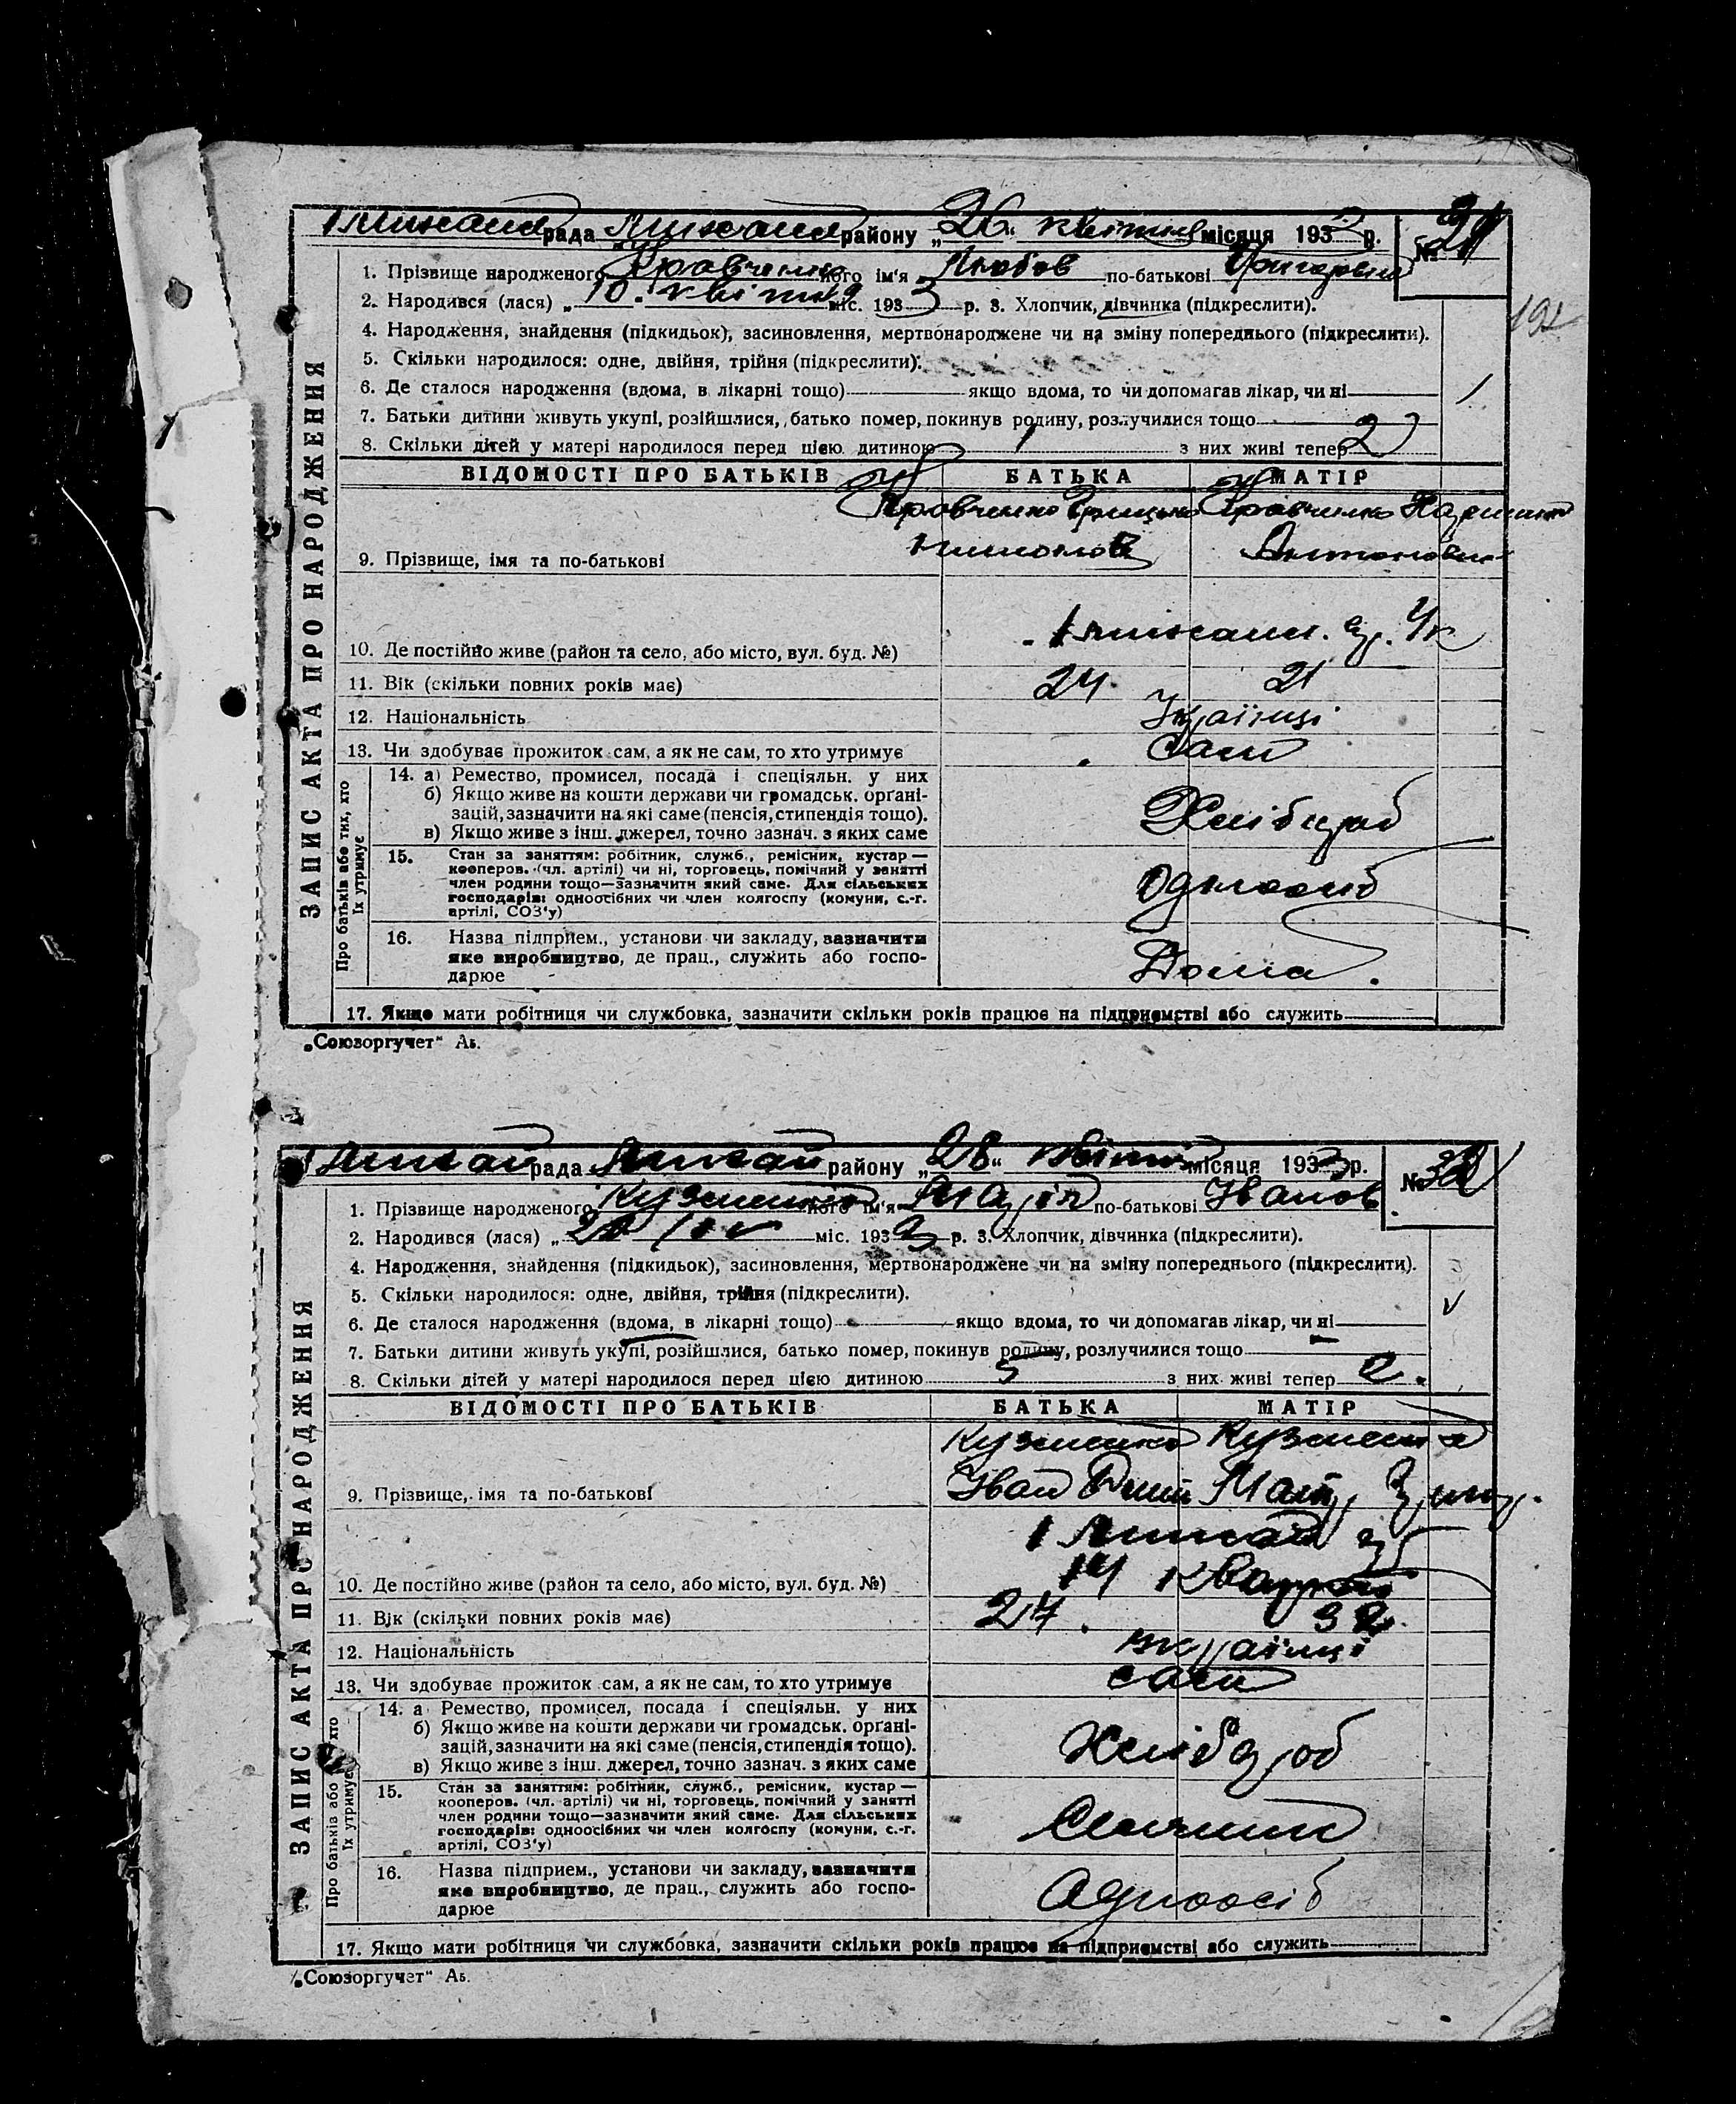 рада району „26“ квітня місяця 1933 р. №
1. Прізвище народженого Кравченко його ім'я Любов по-батькові Григоровна
2. Народився (лася) „10. квітня міс. 1933 р. 3. Хлопчик, дівчинка (підкреслити).
4. Народження, знайдення (підкидьок), засиновлення, мертвонароджене чи на зміну попереднього (підкреслити).
5. Скільки народилося: одне, двійня, трійня (підкреслити).
6. Де сталося народження (вдома, в лікарні тощо) якщо вдома, то чи допомагав лікар, чи ні
7. Батьки дитини живуть укупі, розійшлися, батько помер, покинув родину, розлучилися тощо
8. Скільки дітей у матері народилося перед цією дитиною 1 з них живі тепер 2
ВІДОМОСТІ ПРО БАТЬКІВ БАТЬКА МАТІР
Кравченко Грицько Кравченко
9. Прізвище, імя та по-батькові Антоновна
10. Де постійно живе (район та село, або місто, вул. буд. №)
11. Вік (скільки повних років має) 24 21
12. Національність Українці
13. Чи здобуває прожиток сам, а як не сам, то хто утримує сами
14. а) Ремество, промисел, посада і спеціяльн. у них
б) Якщо живе на кошти держави чи громадськ. орґані-
зацій, зазначити на які саме (пенсія, стипендія тощо).
в) Якщо живе з інш. джерел, точно зазнач. з яких саме
Хлібороб
15. Стан за заняттям: робітник, служб., ремісник, кустар —
кооперов. (чл. артілі) чи ні, торговець, помічний у занятті
член родини тощо—зазначити який саме. Для сільських
господарів: одноосібних чи член колгоспу (комуни, с.-г.
артілі, СОЗ'у)
Одноосіб
16. Назва підприєм., установи чи закладу, зазначити
яке виробництво, де прац., служить або госпо-
дарює
Дома
17. Якщо мати робітниця чи службовка, зазначити скільки років працює на підприємстві або служить
ЗАПИС АКТА ПРО НАРОДЖЕННЯ
Про батьків або тих, хто їх утримує
„Союзоргучет“ Аь.
рада району „28“ квітня місяця 1933 р. № 32
1. Прізвище народженого Кузменко його ім'я Марія по-батькові Іванов
2. Народився (лася) „ міс. 1933 р. 3. Хлопчик, дівчинка (підкреслити).
4. Народження, знайдення (підкидьок), засиновлення, мертвонароджене чи на зміну попереднього (підкреслити).
5. Скільки народилося: одне, двійня, трійня (підкреслити).
6. Де сталося народження (вдома, в лікарні тощо) якщо вдома, то чи допомагав лікар, чи ні
7. Батьки дитини живуть укупі, розійшлися, батько помер, покинув родину, розлучилися тощо
8. Скільки дітей у матері народилося перед цією дитиною 5 з них живі тепер 2.
ВІДОМОСТІ ПРО БАТЬКІВ БАТЬКА МАТІР
Кузменко Кузменко
9. Прізвище, імя та по-батькові Іван
10. Де постійно живе (район та село, або місто, вул. буд. №)
11. Вік (скільки повних років має) 27. 32
12. Національність українці
13. Чи здобуває прожиток сам, а як не сам, то хто утримує сами
14. а Ремество, промисел, посада і спеціяльн. у них
б) Якщо живе на кошти держави чи громадськ. орґані-
зацій, зазначити на які саме (пенсія, стипендія тощо).
в) Якщо живе з інш. джерел, точно зазнач. з яких саме
Хлібороб
15. Стан за заняттям: робітник, служб., ремісник, кустар —
кооперов. (чл. артілі) чи ні, торговець, помічний у занятті
член родини тощо—зазначити який саме. Для сільських
господарів: одноосібних чи член колгоспу (комуни, с.-г.
артілі, СОЗ'у)
16. Назва підприєм., установи чи закладу, зазначити
яке виробництво, де прац., служить або госпо-
дарює
Одноосіб
17. Якщо мати робітниця чи службовка, зазначити скільки років працює на підприємстві або служить
ЗАПИС АКТА ПРО НАРОДЖЕННЯ
Про батьків або хто їх утримує
„Союзоргучет“ Аь.